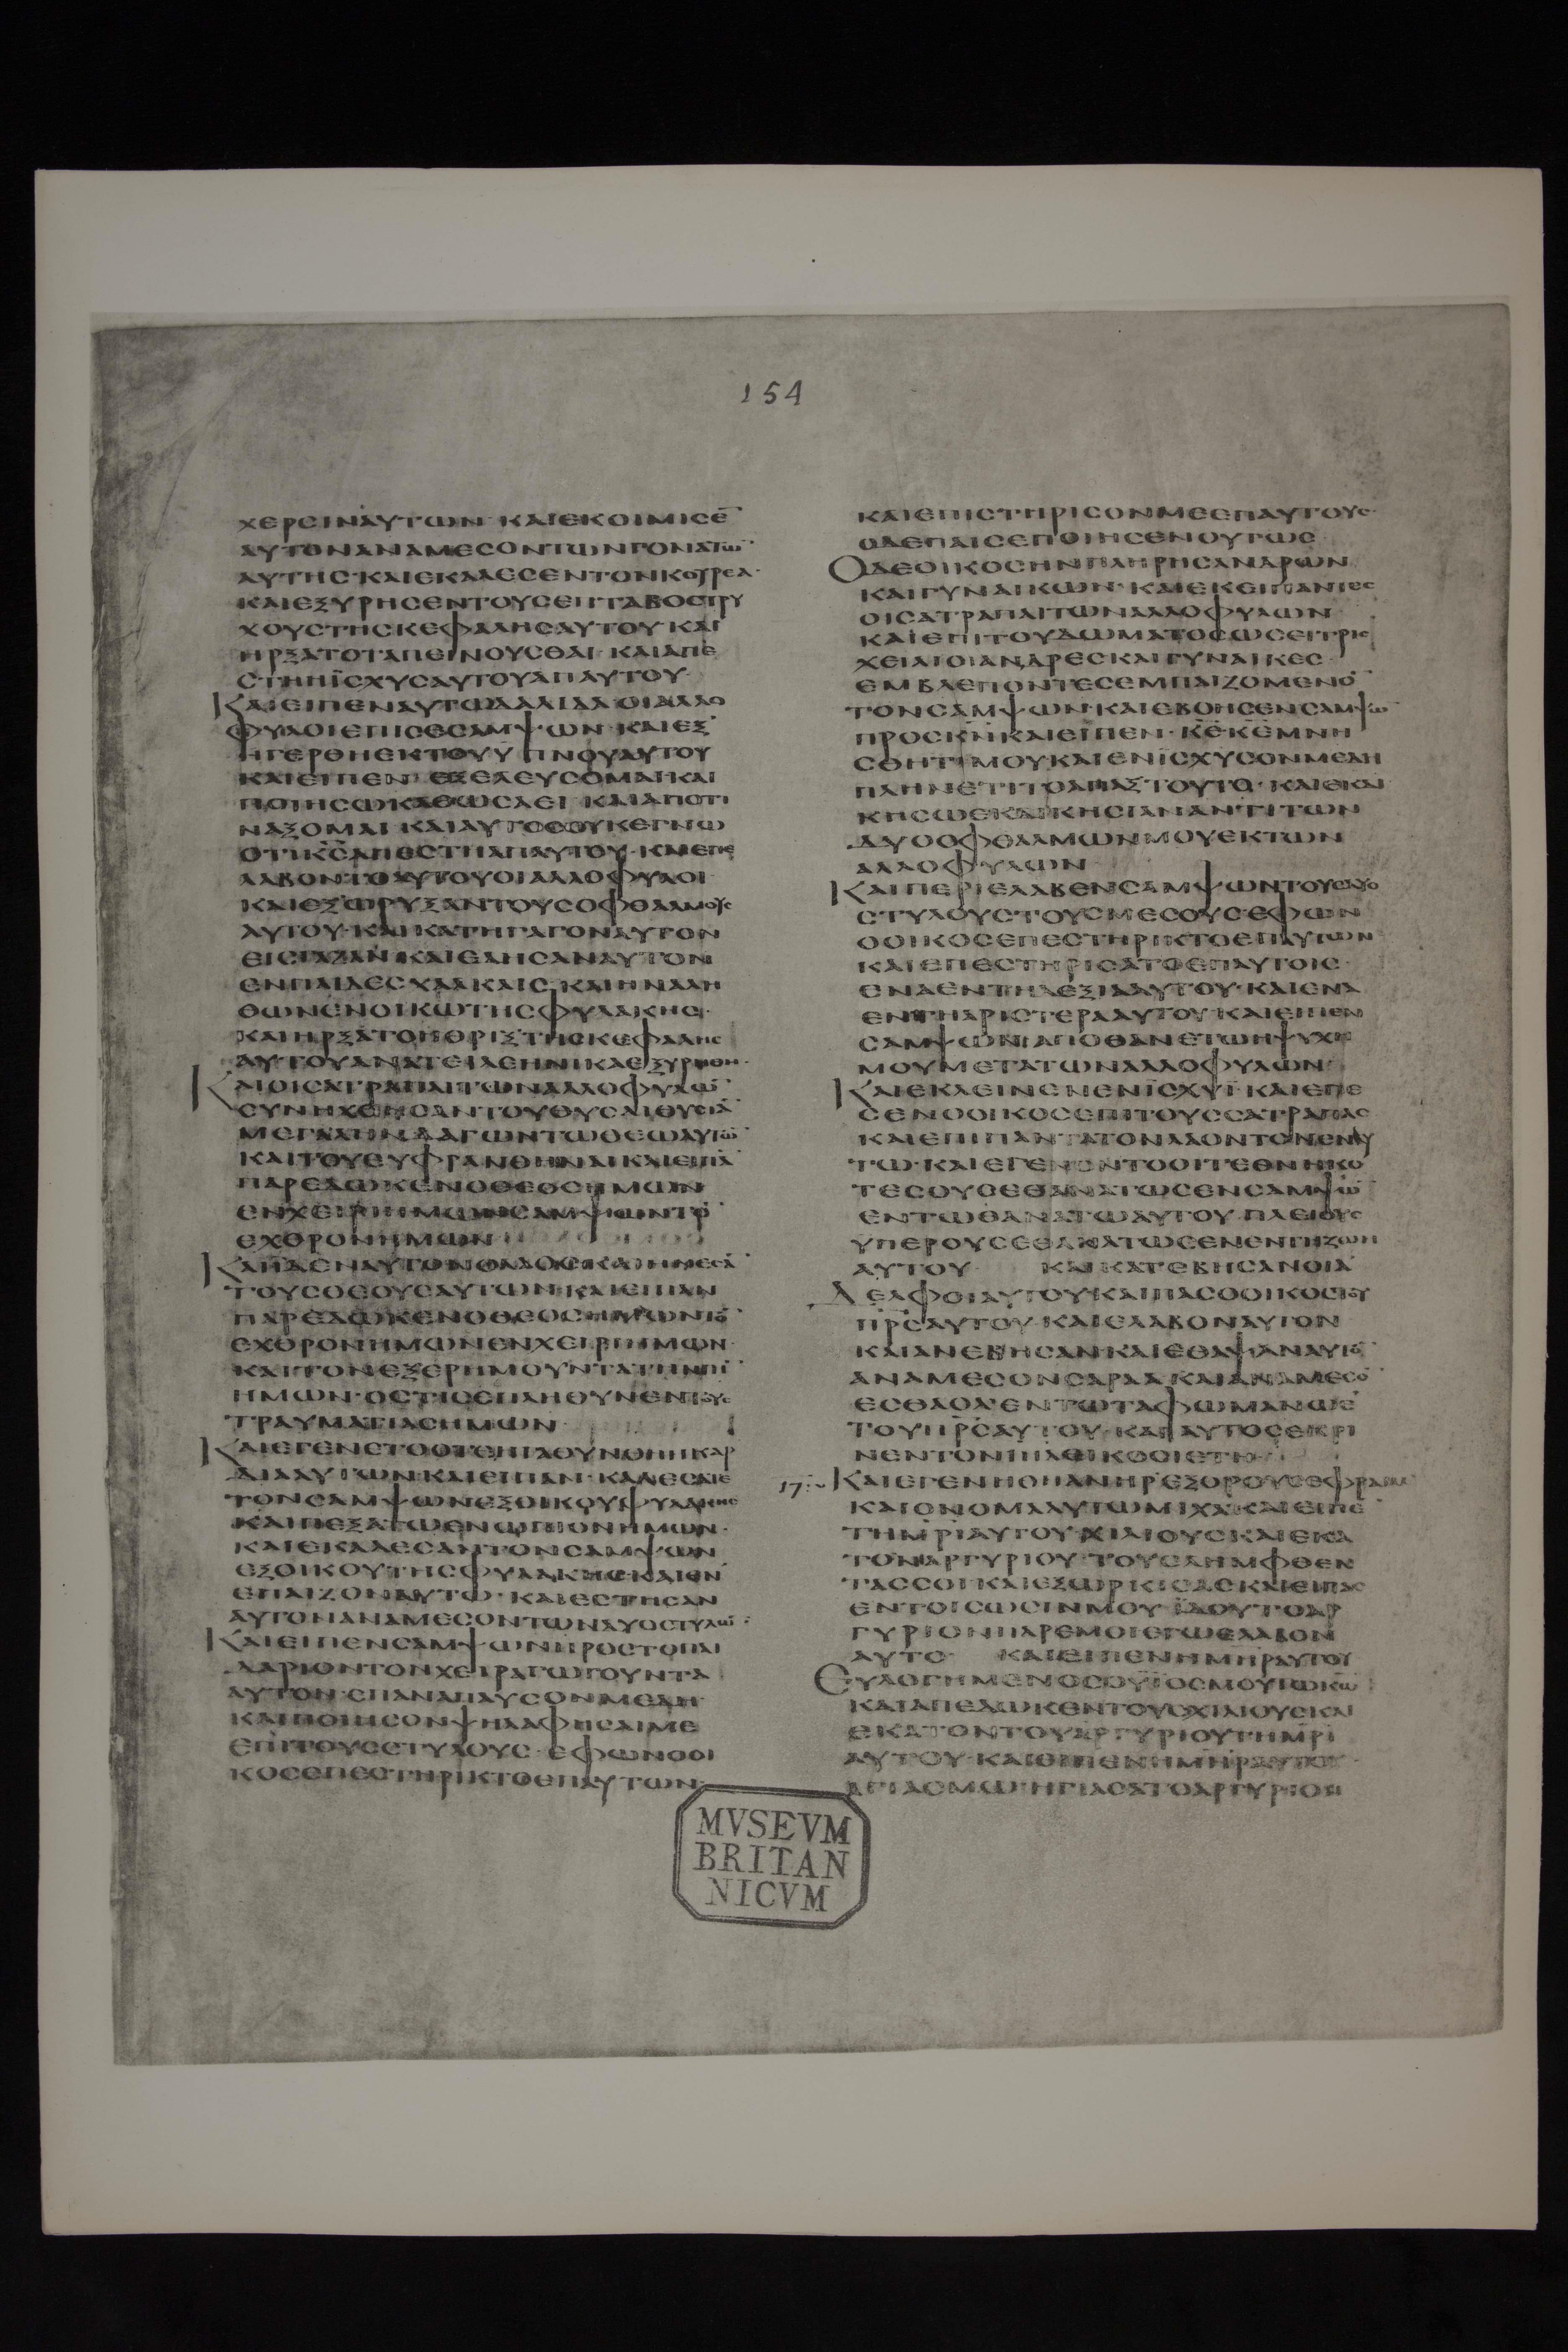 154
ΧΕΡΣΙΝΑΥΤΩΝ ΚΑΙΕΚΟΙΜΙΣΕ̅
ΑΥΤΟΝΑΝΑΜΕΣΟΝΤΩΝΓΟΝΑΤΩ̅
ΑΥΤΗΣ·ΚΑΙΕΚΑΛΕΣΕΝΤΟΝΚΟΥΡΕΑ·
ΚΑΙΕΞΥΡΗΣΕΝΤΟΥΣΕΠΤΑΒΟΣΤΡΥ
ΧΟΥΣΤΗΣΚΕΦΑΛΗΣΑΥΤΟΥΚΑΙ
ΗΡΞΑΤΟΤΑΠΕΙΝΟΥΣΘΑΙ·ΚΑΙΑΠΕ
ΣΤΗΗΪΣΧΥΣΑΥΤΟΥΑΠΑΥΤΟΥ·
ΚΑΙΕΙΠΕΝΑΥΤΩΔΑΛΙΔΑ·ΟΙΑΛΛΟ
ΦΥΛΟΙΕΠΙΣΕΣΑΜΨΩΝ·ΚΑΙΕΞ
ΗΓΕΡΘΗΕΚΤΟΥΥΠΝΟΥΑΥΤΟΥ
ΚΑΙΕΙΠΕΝ ΕΞΕΛΕΥΣΟΜΑΙΚΑΙ
ΠΟΙΗΣΩΚΑΘΩΣΑΕΙ ΚΑΙΑΠΟΤΙ
ΝΑΞΟΜΑΙ ΚΑΙΑΥΤΟΣΟΥΚΕΓΝΩ
ΟΤΙΚ̅Σ̅ΑΠΕΣΤΗΑΠΑΥΤΟΥ·ΚΑΙΕΠΕ
ΛΑΒΟΝΤΟΑΥΤΟΥΟΙΑΛΛΟΦΥΛΟΙ·
ΚΑΙΕΞΩΡΥΞΑΝΤΟΥΣΟΦΘΑΛΜΟΥΣ
ΑΥΤΟΥ·ΚΑΙΚΑΤΗΓΑΓΟΝΑΥΤΟΝ
ΕΙΣΓΑΖΑΝ ΚΑΙΕΔΗΣΑΝΑΥΤΟΝ
ΕΝΠΑΙΔΕΣΧΑΛΚΑΙΣ·ΚΑΙΗΝΑΛΗ
ΘΩΝΕΝΟΙΚΩΤΗΣΦΥΛΑΚΗΣ·
ΚΑΙΗΡΞΑΤΟΗΘΡΙΞΤΗΣΚΕΦΑΛΗΣ
ΑΥΤΟΥΑΝΑΤΕΙΛΕΗΝΙΚΑΕΞΥΡΗΘΗ·
ΚΑΙΟΙΣΑΤΡΑΠΑΙΤΩΝΑΛΛΟΦΥΛΩ̅
ΣΥΝΗΧΘΗΣΑΝΤΟΥΘΥΣΑΙΘΥΣΙΑ̅
ΜΕΓΑΛΗΝΔΑΓΩΝΤΩΘΕΩΑΥΤΩ̅
ΚΑΙΤΟΥΕΥΦΡΑΝΘΗΝΑΙΚΑΙΕΙΠΑ̅
ΠΑΡΕΔΩΚΕΝΟΘΕΟΣΗΜΩΝ
ΕΝΧΕΙΡΙΗΜΩΝΣΑΜΨΩΝΤΟ̅
ΕΧΘΡΟΝΗΜΩΝ
ΚΑΙΪΔΕΝΑΥΤΟΝΟΛΑΟΣΚΑΙΗΝΕΣΑ̅
ΤΟΥΣΘΕΟΥΣΑΥΤΩΝΚΑΙΕΙΠΑΝ
ΠΑΡΕΔΩΚΕΝΟΘΕΟΣΗΜΩΝΤΟ̅
ΕΧΘΡΟΝΗΜΩΝΕΝΧΕΙΡΙΗΜΩΝ·
ΚΑΙΤΟΝΕΞΕΡΗΜΟΥΝΤΑΤΗΝΓΗ̅
ΗΜΩΝ·ΟΣΤΙΣΕΠΛΗΘΥΝΕΝΤΟΥΣ
ΤΡΑΥΜΑΤΙΑΣΗΜΩΝ
ΚΑΙΕΓΕΝΕΤΟΟΤΕΗΓΑΘΥΝΘΗΗΚΑΡ
ΔΙΑΑΥΤΩΝ·ΚΑΙΕΙΠΑΝ·ΚΑΛΕΣΑΤΕ
ΤΟΝΣΑΜΨΩΝΕΞΟΙΚΟΥΦΥΛΑΚΗΣ
ΚΑΙΠΕΞΑΤΩΕΝΩΠΙΟΝΗΜΩΝ·
ΚΑΙΕΚΑΛΕΣΑΝΤΟΝΣΑΜΨΩΝ
ΕΞΟΙΚΟΥΤΗΣΦΥΛΑΚΗΣΚΑΙΕΝ
ΕΠΑΙΖΟΝΑΥΤΩ·ΚΑΙΕΣΤΗΣΑΝ
ΑΥΤΟΝΑΝΑΜΕΣΟΝΤΩΝΔΥΟΣΤΥΛΩ̅
ΚΑΙΕΙΠΕΝΣΑΜΨΩΝΠΡΟΣΤΟΠΑΙ
ΔΑΡΙΟΝΤΟΝΧΕΙΡΑΓΩΓΟΥΝΤΑ
ΑΥΤΟΝ·ΕΠΑΝΑΠΑΥΣΟΝΜΕΔΗ
ΚΑΙΠΟΙΗΣΟΝΨΗΛΑΦΗΣΑΙΜΕ
ΕΠΙΤΟΥΣΣΤΥΛΟΥΣ·ΕΦΩΝΟΟΙ
ΚΟΣΕΠΕΣΤΗΡΙΚΤΟΕΠΑΥΤΩΝ
ΚΑΙΕΠΙΣΤΗΡΙΣΟΝΜΕΕΠΑΥΤΟΥΣ
ΟΔΕΠΑΙΣΕΠΟΙΗΣΕΝΟΥΤΩΣ
ΟΔΕΟΙΚΟΣΗΝΠΛΗΡΗΣΑΝΔΡΩΝ
ΚΑΙΓΥΝΑΙΚΩΝ·ΚΑΙΕΚΕΙΠΑΝΤΕΣ
ΟΙΣΑΤΡΑΠΑΙΤΩΝΑΛΛΟΦΥΛΩΝ
ΚΑΙΕΠΙΤΟΥΔΩΜΑΤΟΣΩΣΕΙΤΡΙΣ
ΧΕΙΛΙΟΙΑΝΔΡΕΣΚΑΙΓΥΝΑΙΚΕΣ
ΕΜΒΛΕΠΟΝΤΕΣΕΜΠΑΙΖΟΜΕΝΟ̅
ΤΟΝΣΑΜΨΩΝ·ΚΑΙΕΒΟΗΣΕΝΣΑΜΨΩ̅
ΠΡΟΣΚ̅Ν̅ΚΑΙΕΙΠΕΝ·Κ̅Ε̅Κ̅Ε̅ΜΝΗ
ΣΘΗΤΙΜΟΥΚΑΙΕΝΪΣΧΥΣΟΝΜΕΔΗ
ΠΛΗΝΕΤΙΤΟΑΠΑΞΤΟΥΤΟ·ΚΑΙΕΚΔΙ
ΚΗΣΩΕΚΔΙΚΗΣΙΑΝΑΝΤΙΤΩΝ
ΔΥΟΟΦΘΑΛΜΩΝΜΟΥΕΚΤΩΝ
ΑΛΛΟΦΥΛΩΝ
ΚΑΙΠΕΡΙΕΛΑΒΕΝΣΑΜΨΩΝΤΟΥΣΔΥΟ
ΣΤΥΛΟΥΣΤΟΥΣΜΕΣΟΥΣ·ΕΦΩΝ
ΟΟΙΚΟΣΕΠΕΣΤΗΡΙΚΤΟΕΠΑΥΤΩΝ
ΚΑΙΕΠΕΣΤΗΡΙΣΑΤΟΕΠΑΥΤΟΙΣ·
ΕΝΑΕΝΤΗΔΕΞΙΑΑΥΤΟΥ·ΚΑΙΕΝΑ
ΕΝΤΗΑΡΙΣΤΕΡΑΑΥΤΟΥ·ΚΑΙΕΙΠΕΝ
ΣΑΜΨΩΝΑΠΟΘΑΝΕΤΩΗΨΥΧΗ
ΜΟΥΜΕΤΑΤΩΝΑΛΛΟΦΥΛΩΝ
ΚΑΙΕΚΛΕΙΝΕΝΕΝΪΣΧΥΪ·ΚΑΙΕΠΕ
ΣΕΝΟΟΙΚΟΣΕΠΙΤΟΥΣΣΑΤΡΑΠΑΣ
ΚΑΙΕΠΙΠΑΝΤΑΤΟΝΛΑΟΝΤΟΝΕΝΑΥ
ΤΩ·ΚΑΙΕΓΕΝΟΝΤΟΟΙΤΕΘΝΗΚΟ
ΤΕΣΟΥΣΕΘΑΝΑΤΩΣΕΝΣΑΜΨΩ̅
ΕΝΤΩΘΑΝΑΤΩΑΥΤΟΥ·ΠΛΕΙΟΥΣ
ΥΠΕΡΟΥΣΕΘΑΝΑΤΩΣΕΝΕΝΤΗΖΩΗ
ΑΥΤΟΥ ΚΑΙΚΑΤΕΒΗΣΑΝΟΙΑ
ΔΕΛΦΟΙΑΥΤΟΥΚΑΙΠΑΣΟΟΙΚΟΣΤΟΥ
Π̅Ρ̅Σ̅ΑΥΤΟΥ·ΚΑΙΕΛΑΒΟΝΑΥΤΟΝ
ΚΑΙΑΝΕΒΗΣΑΝ·ΚΑΙΕΘΑΨΑΝΑΥΤΟ̅
ΑΝΑΜΕΣΟΝΣΑΡΑΑΚΑΙΑΝΑΜΕΣΟ̅
ΕΣΘΑΟΛ·ΕΝΤΩΤΑΦΩΜΑΝΩΕ
ΤΟΥΠ̅Ρ̅Σ̅ΑΥΤΟΥ·ΚΑΙΑΥΤΟΣΕΚΡΙ
ΝΕΝΤΟΝΙΗΛ·ΕΙΚΟΣΙΕΤΗ
17 ΚΑΙΕΓΕΝΗΘΗΑΝΗΡΕΞΟΡΟΥΣΕΦΡΑΙΜ
ΚΑΙΟΝΟΜΑΑΥΤΩΜΙΧΑ·ΚΑΙΕΙΠΕ̅
ΤΗΜ̅Ρ̅Ι̅ΑΥΤΟΥ·ΧΙΛΙΟΥΣΚΑΙΕΚΑ
ΤΟΝΑΡΓΥΡΙΟΥ·ΤΟΥΣΛΗΜΦΘΕΝ
ΤΑΣΣΟΙΚΑΙΕΞΩΡΚΙΣΑΣΚΑΙΕΙΠΑΣ
ΕΝΤΟΙΣΩΣΙΝΜΟΥ·ΪΔΟΥΤΟΑΡ
ΓΥΡΙΟΝΠΑΡΕΜΟΙΕΓΩΕΛΑΒΟΝ
ΑΥΤΟ ΚΑΙΕΙΠΕΝΗΜ̅Η̅Ρ̅ΑΥΤΟΥ
ΕΥΛΟΓΗΜΕΝΟΣΟΥΪΟΣΜΟΥΤΩΚ̅Ω̅
ΚΑΙΑΠΕΔΩΚΕΝΤΟΥΣΧΙΛΙΟΥΣΚΑΙ
ΕΚΑΤΟΝΤΟΥΑΡΓΥΡΙΟΥΤΗΜ̅Ρ̅Ι̅
ΑΥΤΟΥ·ΚΑΙΕΙΠΕΝΗΜ̅Η̅Ρ̅ΑΥΤΟΥ·
ΑΓΙΑΣΜΩΗΓΙΑΣΑΤΟΑΡΓΥΡΙΟΝ
MVSEVM
BRITAN
NICVM